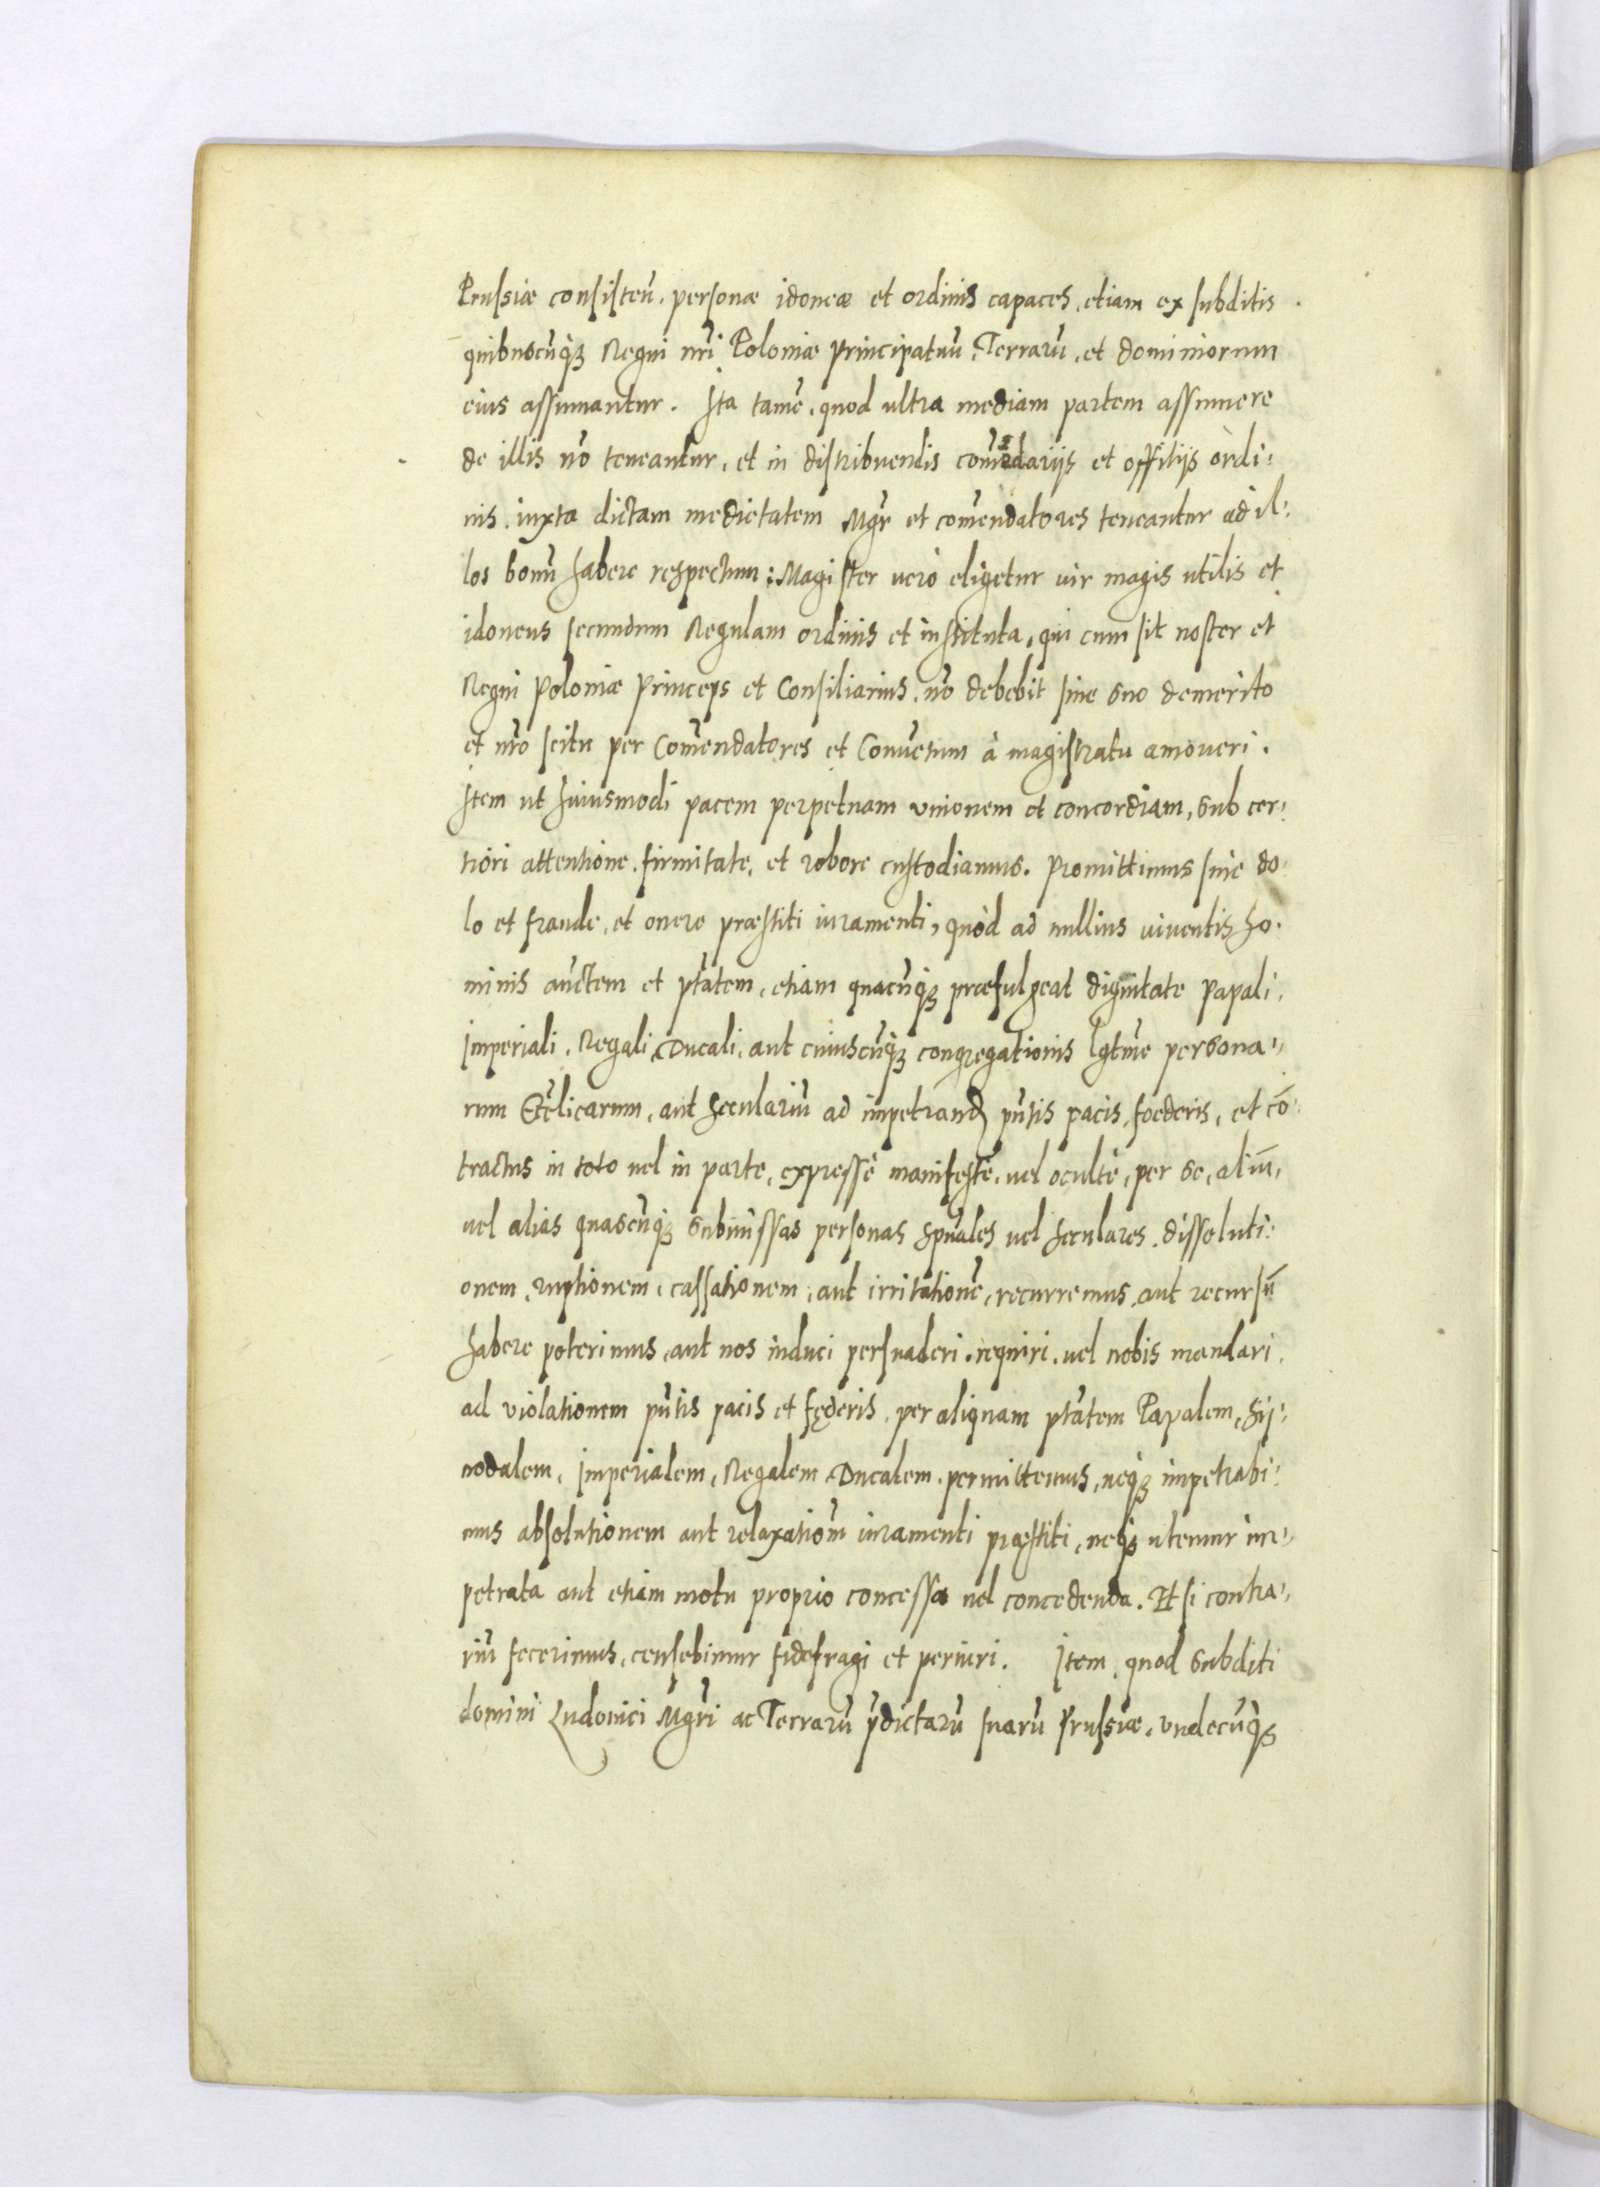 Prussiæ consisteñ. personæ idoneæ et ordinis capaces, etiam ex subditis
quibuscũq₃ Regni nr̃i Poloniæ Principatuũ, Terrarũ, et dominiorum
eius assumantur. Ita tamẽ, quod ultra mediam partem assumere
de illis nõ teneantur, et in distribuendis com̃edarijs et offitijs ordi:
nis, iuxta dictam medietatem Mgr̃ et com̃endatores teneantur ad il:
los bonũ habere respectum: Magister verò eligetur vir magis utilis et
idoneus secundum Regulam ordinis et instituta, qui cum sit noster et
Regni Poloniæ Princeps et Consiliarius, nõ debebit sine suo demerito
et nr̃o scitu per Com̃endatores et Conuetum à magistratu amoueri.
Item ut huiusmodi pacem perpetuam unionem et concordiam, sub cer:
tiori attentione, firmitate, et robore custodiamus. Promittimus sine do:
lo et fraude, et onere præstiti iuramenti, quòd ad nullius viuentis ho:
minis auc̃tem et ptãtem, etiam quacũq₃ præfulgeat dignitate Papali,
Imperiali, Regali, Ducali, aut cuiuscũq₃ congregationis lgtm̃e persona:
rum Ecc̃licarum, aut Seculariũ ad impetrand pñtis pacis, foederis, et cõ:
tractus in toto vel in parte, expressè manifestè, vel ocultè, per se, aliũ,
vel alias quascũq₃ submissas personas spũales vel seculares, dissoluti:
onem, ruptionem, cassationem, aut irritationẽ, recurremus, aut recursũ
habere poterimus, aut nos induci persuaderi, requiri, vel nobis mandari,
ad violationem pñtis pacis et fęderis, per aliquam ptãtem Papalem, Sy:
nodalem, Imperialem, Regalem, Ducalem, permittemus, neq₃ impetrabi:
mus absolutionem aut relaxatiom̃ iuramenti præstiti, neq₃ utemur im:
petrata aut etiam motu proprio concessa vel concedenda. Et si contra:
riũ fecerimus, censebimur fidefragi et periuri. Item, quod subditi
domini Ludouici Mgr̃i ac Terrarũ p̃dictarũ suarũ Prussiæ, undecũq₃